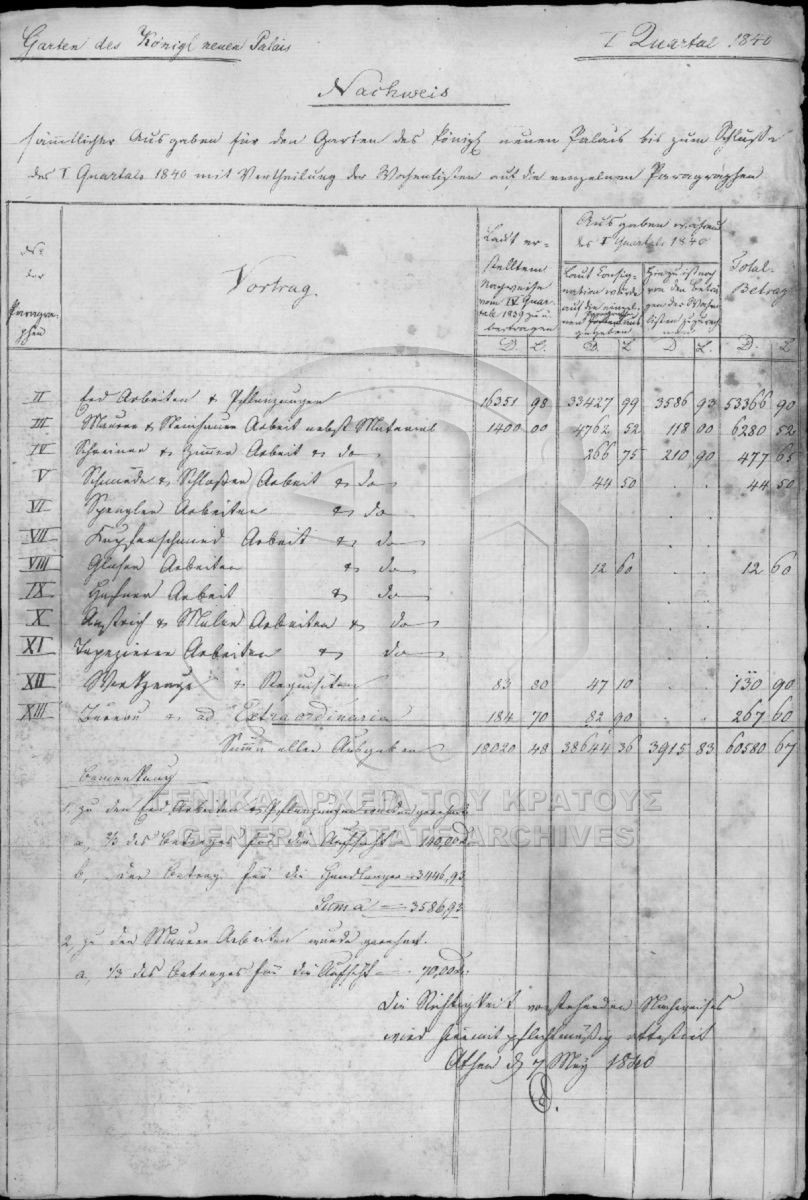 Garten des Königl neuen Palais
I Quartal 1840
Nachweis
sämmtlicher Ausgaben für den Garten des Königl neuen Palais bis zum Schluße
des I Quartals 1840 mit Vertheilung der Wochenlisten auf die einzelnen Paragraphen
No der Paragraphen
Vortrag
Laut erstelltem Nachweise vom IV Quartale 1839 zu übertragen
Ausgaben während des I Quartals 1840
Laut Consignation wurde auf die einzelnen ausgegeben
Hiezu ist noch von den Beträgen der Wochenlisten zu rechnen
Total-Betrag
D. L. D. L D L. D. L
II Erd Arbeiten & Pflanzungen 16351 98 33427 99 3586 93 53366 90
III Maurer & Steinhauer Arbeit nebst Material 1400 00 4762 52 118 00 6280 52
IV Schreiner & Zimmer Arbeit & do 266 75 210 90 477 65
V Schmiede & Schlosser Arbeit & do 44 50 44 50
VI Spengler Arbeiten & do
VII Kupferschmied Arbeit & do
VIII Glaser Arbeiten & do 12 60 12 60
IX Hafner Arbeit & do
X Anstrich & Maler Arbeiten & do
XI Tapezierer Arbeiten & do
XII Werkzeuge & Requisiten 83 80 47 10 130 90
XIII Bureau & ad Extraordinaria 184 70 82 90 267 60
Summe aller Ausgaben 18020 48 38644 36 3915 83 60580 67
Bemerkung
1, zu den Erd Arbeiten & Pflanzungen wurden gerechnet
a, 2/3 des Betrages für die Aufsicht 140,00
b, der Betrag für die Handlanger 3446,93
Suma 3586,93
2, zu den Maurer Arbeiten wurde gerechnet.
a, 1/3 des Betrages für die Aufsicht 70,00
Die Richtigkeit vorstehenden Nachweises
wird hiermit pflichtmäßig attestirt
Athen d 7 May 1840
ΓΕΝΙΚΑ ΑΡΧΕΙΑ ΤΟΥ ΚΡΑΤΟΥΣ
GENERAL STATE ARCHIVES